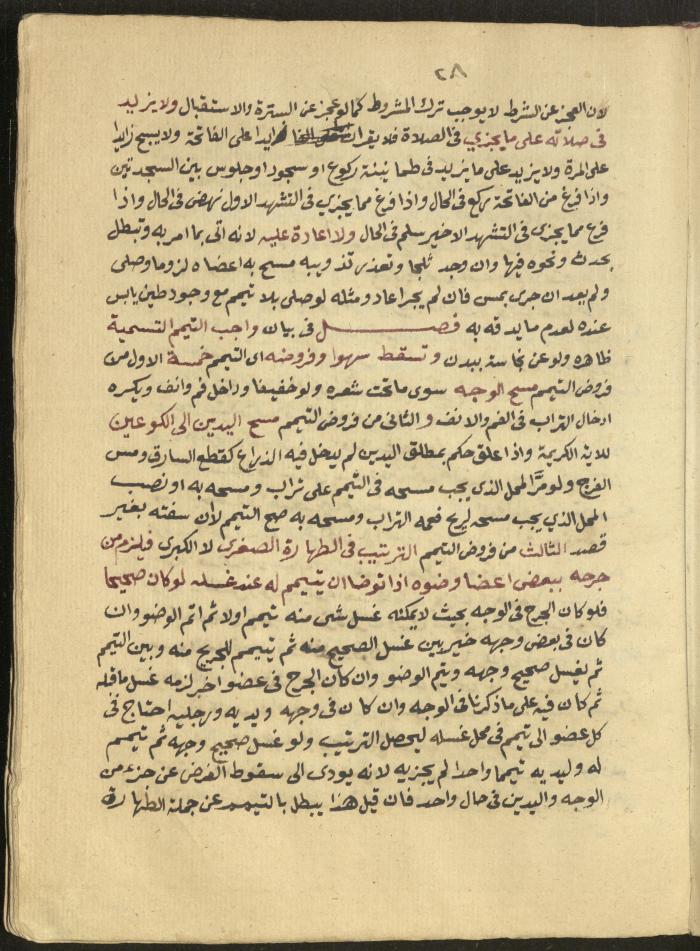 ٢٨
لان العجز عن الشرط لا يوجب ترك المشروط كما لو عجز عن السترة والاستقبال ولا يزيد
في صلاته على ما يجزي في الصلاة فلا يقرا زايدا على الفاتحة ولا يسبح زايدا
على المرة ولا يزيد على ما يزيد في طمانينة ركوع او سجود او جلوس بين السجدتين
واذا فرغ من الفاتحة ركع في الحال واذا فرغ مما يجزي في التشهد الاول نهض في الحال واذا
فرغ مما يجزي في التشهد الاخير سلم في الحال ولا اعادة عليه لانه اتى بما امر به وتبطل
بحدث ونحوه فيها وان وجد ثلجا وتعذر تذويبه مسح به اعضاه لزوما وصلى
ولم يعد ان جرى بمس فان لم يجر اعاد ومثله لو صلى بلا تيمم مع وجود طين يابس
عنده لعدم ما يدقه به فصل في بيان واجب التيمم التسمية
ظاهره ولو عن نجاسة ببدن وتسقط سهوا وفروضه اى التيمم خمسة الاول من
فروض التيمم مسح الوجه سوى ما تحت شعره ولو خفيفا وداخل فم وانف ويكره
ادخال التراب في الفم والانف والثاني من فروض التيمم مسح اليدين الى الكوعين
للاية الكريمة واذا علق حكم بمطلق اليدين لم يدخل فيه الذراع كقطع السارق ومس
الفرج ولو مرّ المحل الذي يجب مسحه في التيمم على تراب ومسحه به او نصب
المحل الذي يجب مسحه لريح فعمه التراب ومسحه به صح التيمم لا ان سفته بغير
قصد الثالث من فروض التيمم الترتيب في الطهارة الصغرى لا الكبرى فيلزم من
جرحه ببعض اعضا وضوه اذا توضا ان يتيمم له عند غسله لو كان صحيحا
فلو كان الجرح في الوجه بحيث لا يمكنه غسل شي منه تيمم اولا ثم اتم الوضو وان
كان في بعض وجهه خير بين غسل الصحيح منه ثم يتيمم للجريح منه وبين التيمم
ثم يغسل صحيح وجهه ويتم الوضو وان كان الجرح في عضو اخر لزمه غسل ما قبله
ثم كان فيه على ما ذكرنا في الوجه وان كان في وجهه ويديه ورجليه احتاج في
كل عضو الى تيمم في محل غسله ليحصل الترتيب ولو غسل صحيح وجهه ثم تيمم
له وليديه تيمما واحدا لم يجزيه لانه يودى الى سقوط الفرض عن جزء من
الوجه واليدين في حال واحد فان قيل هذا يبطل بالتيمم عن جملة الطهارة